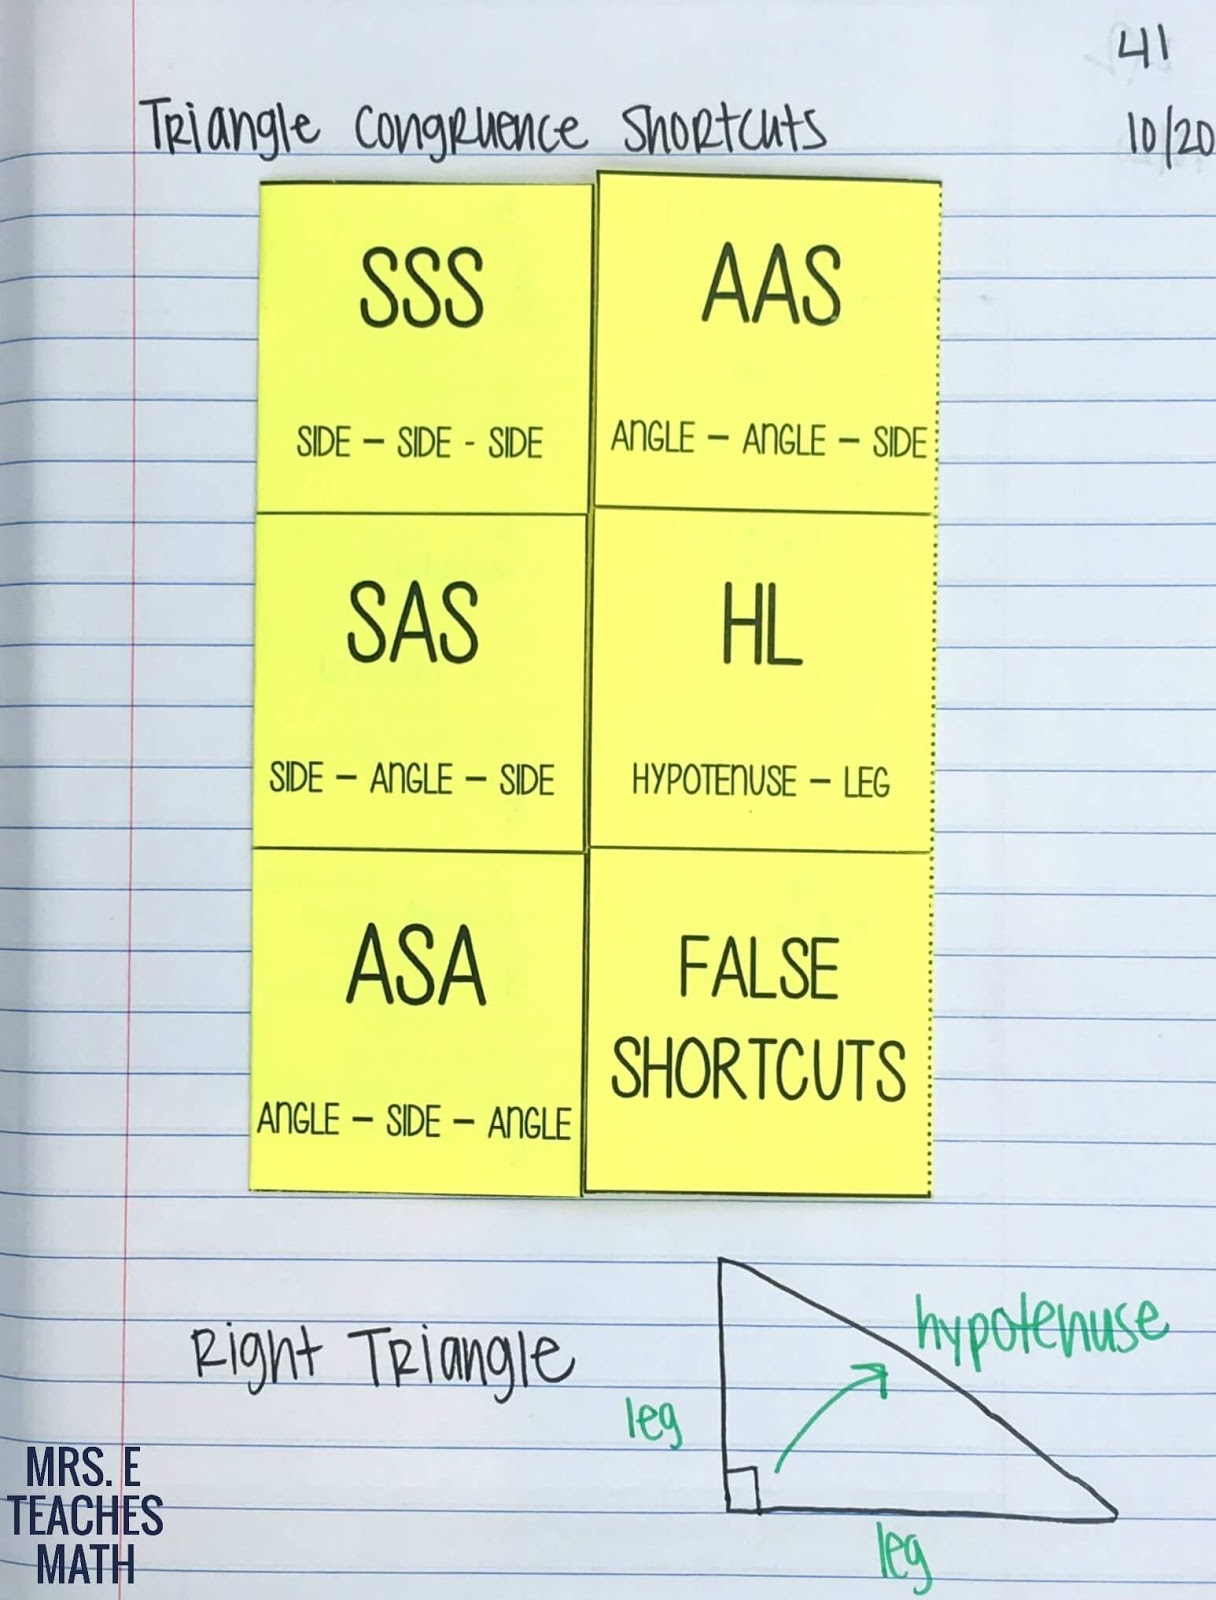 41
Triangle Congruence Shortcuts
10/20
SSS
SIDE – SIDE - SIDE
AAS
ANGLE – ANGLE – SIDE
SAS
SIDE – ANGLE – SIDE
HL
HYPOTENUSE – LEG
ASA
ANGLE – SIDE – ANGLE
FALSE
SHORTCUTS
Right Triangle
hypotenuse
leg
leg
MRS. E
TEACHES
MATH